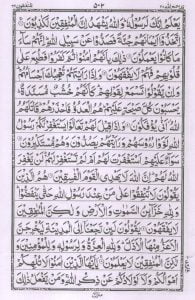 ۵۰۲
يَعْلَمُ اِنَّكَ لَرَسُوْلُهٗ ؕ وَاللّٰهُ يَشْهَدُ اِنَّ الْمُنٰفِقِيْنَ لَكٰذِبُوْنَ
اِتَّخَذُوْۤا اَيْمَانَهُمْ جُنَّةً فَصَدُّوْا عَنْ سَبِيْلِ اللّٰهِ ؕ اِنَّهُمْ سَآءَ
مَا كَانُوْا يَعْمَلُوْنَ ذٰلِكَ بِاَنَّهُمْ اٰمَنُوْا ثُمَّ كَفَرُوْا فَطُبِعَ عَلٰى
قُلُوْبِهِمْ فَهُمْ لَا يَفْقَهُوْنَ وَاِذَا رَاَيْتَهُمْ تُعْجِبُكَ اَجْسَامُهُمْ
وَاِنْ يَّقُوْلُوْا تَسْمَعْ لِقَوْلِهِمْ ؕ كَاَنَّهُمْ خُشُبٌ مُّسَنَّدَةٌ
يَحْسَبُوْنَ كُلَّ صَيْحَةٍ عَلَيْهِمْ ؕ هُمُ الْعَدُوُّ فَاحْذَرْهُمْ ؕ قَاتَلَهُمُ
اللّٰهُ اَنّٰى يُؤْفَكُوْنَ وَاِذَا قِيْلَ لَهُمْ تَعَالَوْا يَسْتَغْفِرْ لَكُمْ رَسُوْلُ
اللّٰهِ لَوَّوْا رُءُوْسَهُمْ وَرَاَيْتَهُمْ يَصُدُّوْنَ وَهُمْ مُّسْتَكْبِرُوْنَ
سَوَآءٌ عَلَيْهِمْ اَسْتَغْفَرْتَ لَهُمْ اَمْ لَمْ تَسْتَغْفِرْ لَهُمْ ؕ لَنْ يَّغْفِرَ
اللّٰهُ لَهُمْ ؕ اِنَّ اللّٰهَ لَا يَهْدِى الْقَوْمَ الْفٰسِقِيْنَ هُمُ الَّذِيْنَ
يَقُوْلُوْنَ لَا تُنْفِقُوْا عَلٰى مَنْ عِنْدَ رَسُوْلِ اللّٰهِ حَتّٰى يَنْفَضُّوْا
وَلِلّٰهِ خَزَآئِنُ السَّمٰوٰتِ وَالْاَرْضِ وَلٰكِنَّ الْمُنٰفِقِيْنَ
لَا يَفْقَهُوْنَ يَقُوْلُوْنَ لَئِنْ رَّجَعْنَاۤ اِلَى الْمَدِيْنَةِ لَيُخْرِجَنَّ
الْاَعَزُّ مِنْهَا الْاَذَلَّ ؕ وَلِلّٰهِ الْعِزَّةُ وَلِرَسُوْلِهٖ وَلِلْمُؤْمِنِيْنَ وَ
لٰكِنَّ الْمُنٰفِقِيْنَ لَا يَعْلَمُوْنَ يٰۤاَيُّهَا الَّذِيْنَ اٰمَنُوْا لَا تُلْهِكُمْ
اَمْوَالُكُمْ وَلَاۤ اَوْلَادُكُمْ عَنْ ذِكْرِ اللّٰهِ ۚ وَمَنْ يَّفْعَلْ ذٰلِكَ